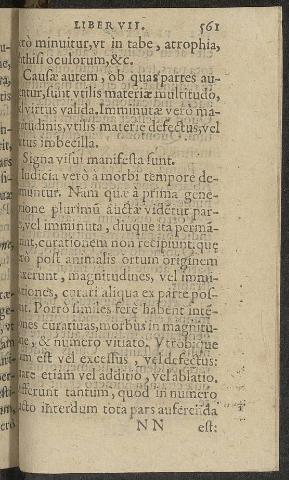 LIBER VII. 561
rò minuitur, vt in tabe, atrophia,
hthisi oculorum, &c.
Causæ autem, ob quas partes au-
entur, sunt vtilis materiæ multitudo,
virtus valida. Imminutæ verò ma-
itudinis, vtilis materiæ defectus, vel
tus imbecilla.
Signa visui manifesta sunt.
Iudicia verò à morbi tempore de-
muntur. Nam quæ à prima gene-
tione plurimū auctæ videtur par-
, vel imminuta, diuque ita permā-
nt, curationem non recipiunt, quę
rò post animalis ortum originem
xerunt, magnitudines, vel immi-
tiones, curari aliqua ex parte pos-
nt. Porrò similes ferè habent intē-
nes curatiuas, morbus in magnitu-
ne, & numero vitiato. Vtrobique
m est vel excessus, vel defectus:
tare etiam vel additio, vel ablatio.
fferunt tantum, quod in numero
cto interdum tota pars auferenda
NN est: